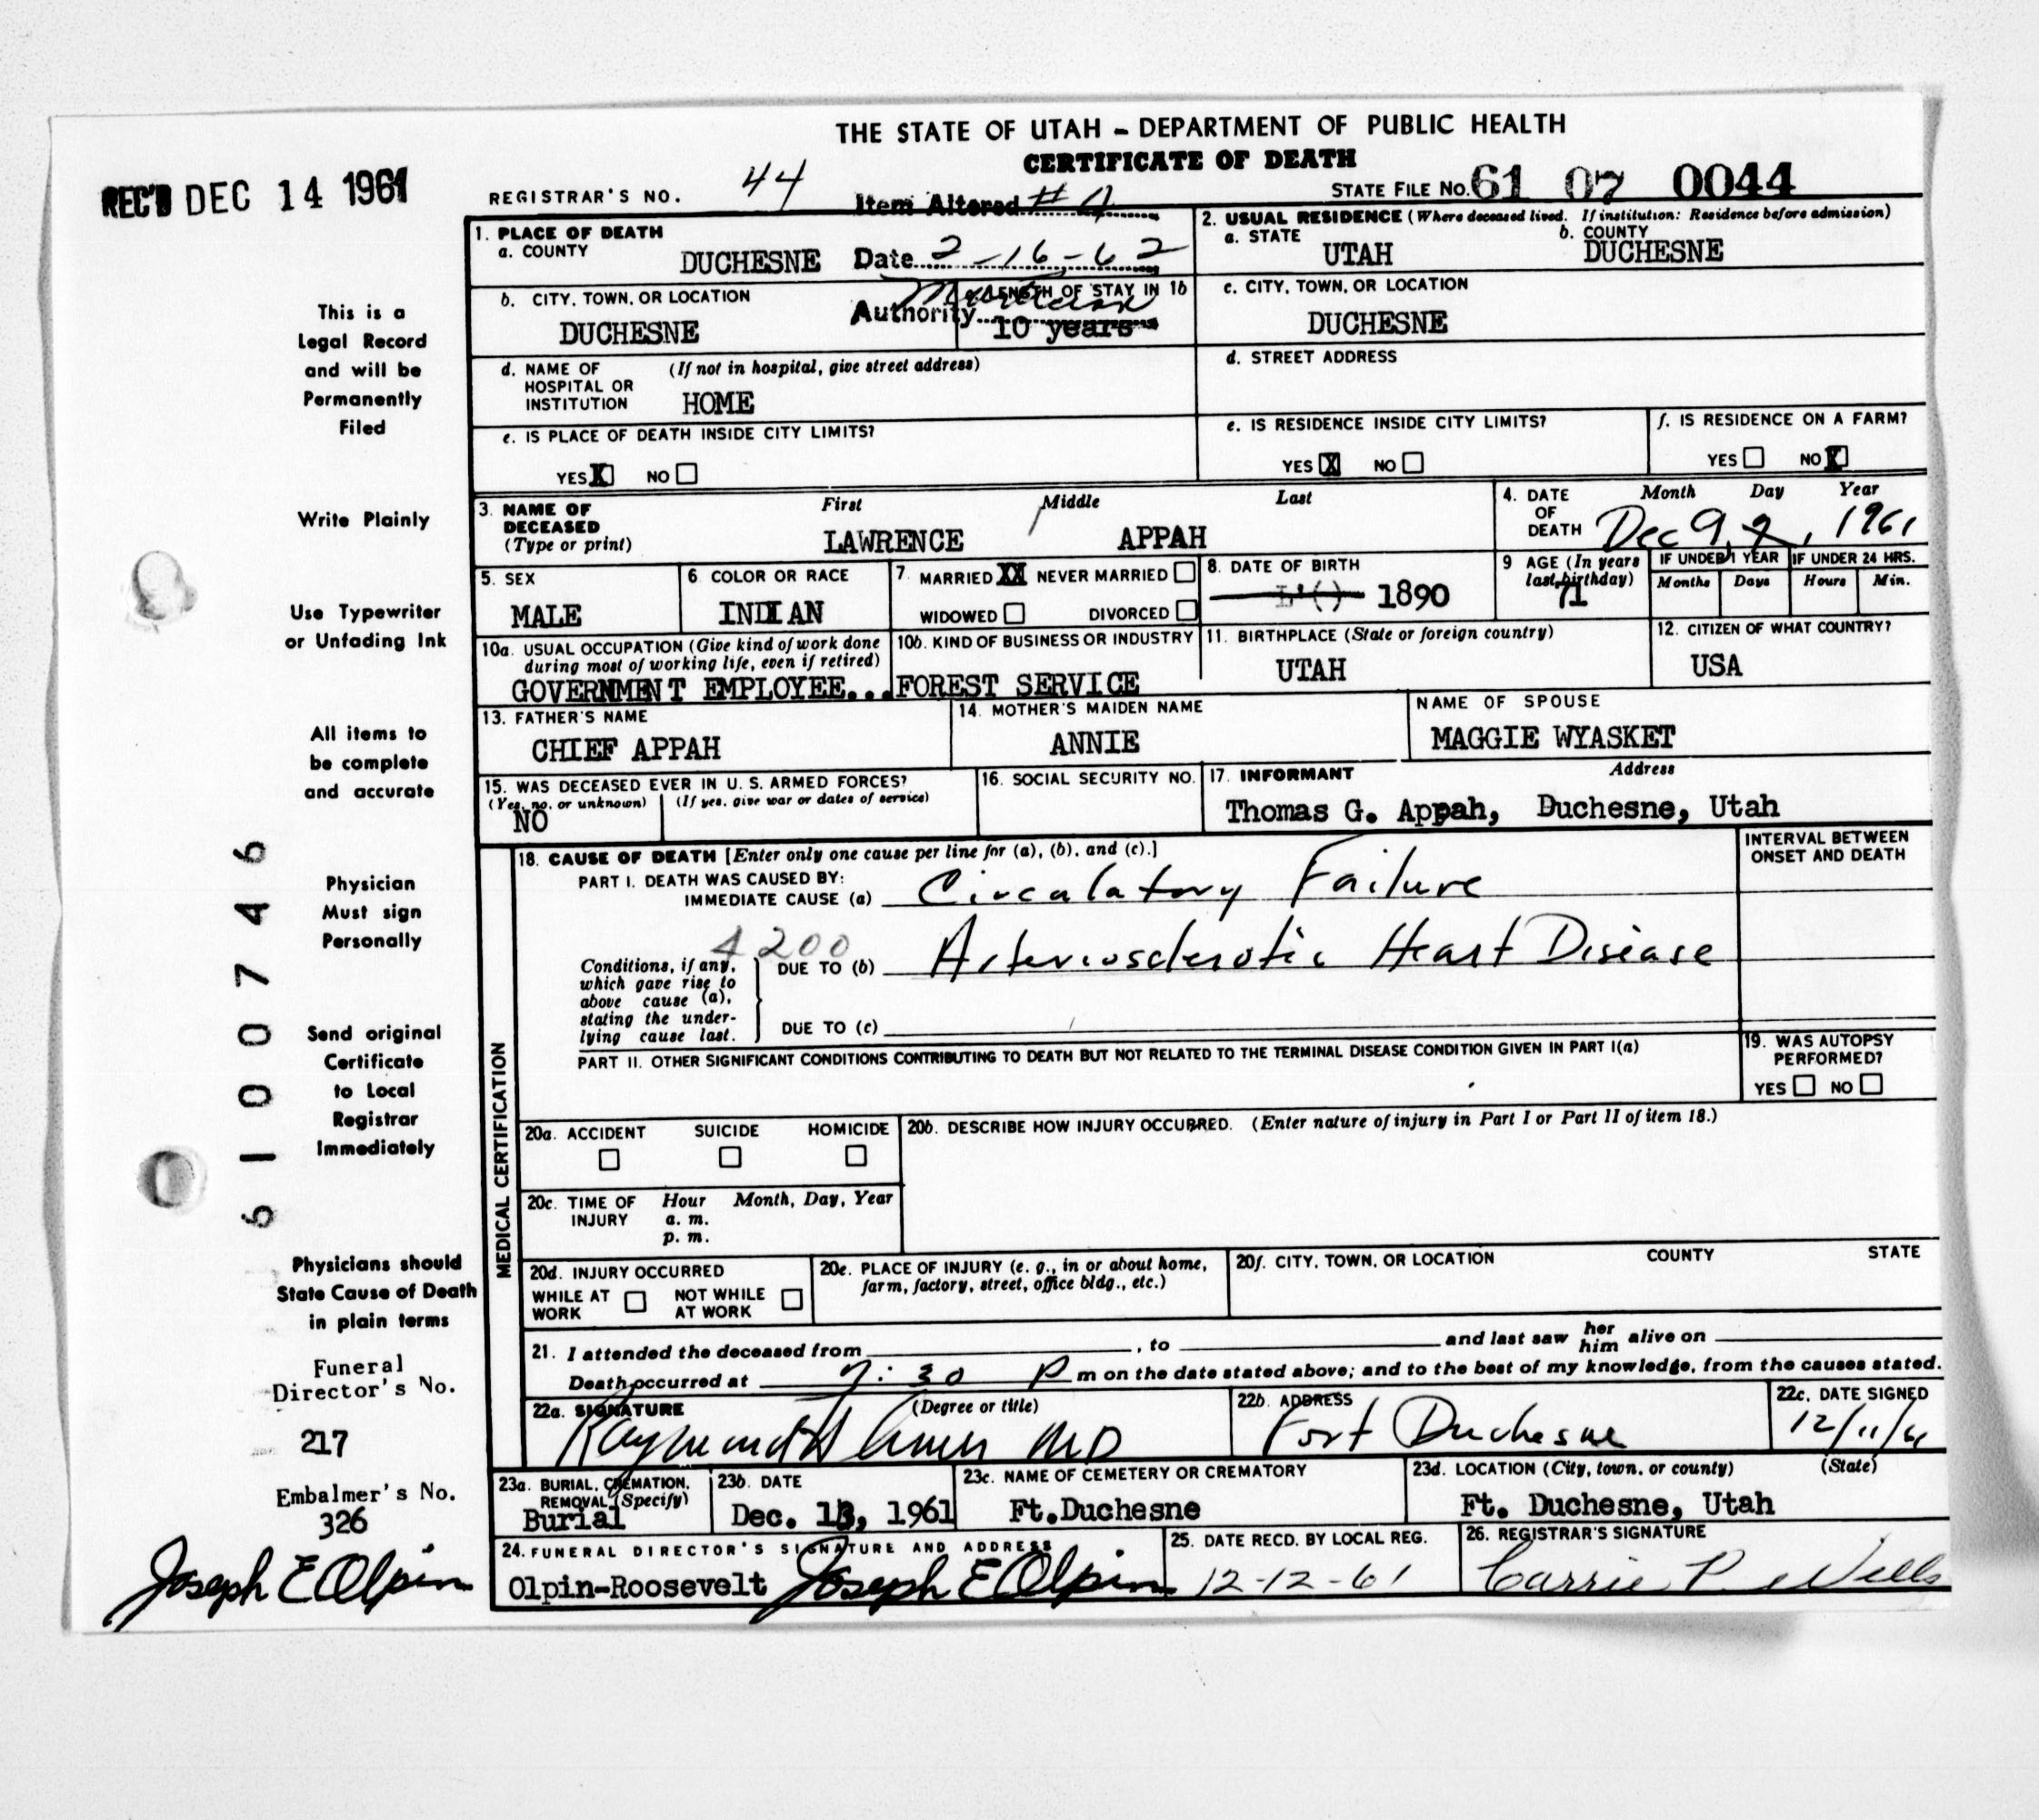 THE STATE OF UTAH – DEPARTMENT OF PUBLIC HEALTH
CERTIFICATE OF DEATH
REC'D DEC 14 1961
REGISTRAR'S NO. 44
Item Altered # 4
STATE FILE NO. 61 07 0044
1. PLACE OF DEATH
a. COUNTY DUCHESNE
Date 2-16-62
2. USUAL RESIDENCE (Where deceased lived. If institution: Residence before admission)
a. STATE UTAH
b. COUNTY DUCHESNE
b. CITY, TOWN, OR LOCATION DUCHESNE
Authority
LENGTH OF STAY IN 1b 10 years
c. CITY, TOWN, OR LOCATION DUCHESNE
d. NAME OF HOSPITAL OR INSTITUTION (If not in hospital, give street address) HOME
d. STREET ADDRESS
e. IS PLACE OF DEATH INSIDE CITY LIMITS?
YES X NO
e. IS RESIDENCE INSIDE CITY LIMITS?
YES X NO
f. IS RESIDENCE ON A FARM?
YES NO X
3. NAME OF DECEASED (Type or print)
First Middle Last
LAWRENCE / APPAH
4. DATE OF DEATH
Month Day Year
Dec 9, 1961
5. SEX MALE
6. COLOR OR RACE INDIAN
7. MARRIED XX NEVER MARRIED
WIDOWED DIVORCED
8. DATE OF BIRTH 1890
9 AGE (In years last birthday) 71
IF UNDER 1 YEAR
Months Days
IF UNDER 24 HRS.
Hours Min.
10a. USUAL OCCUPATION (Give kind of work done during most of working life, even if retired)
GOVERNMENT EMPLOYEE...
10b. KIND OF BUSINESS OR INDUSTRY
FOREST SERVICE
11. BIRTHPLACE (State or foreign country)
UTAH
12. CITIZEN OF WHAT COUNTRY?
USA
13. FATHER'S NAME
CHIEF APPAH
14. MOTHER'S MAIDEN NAME
ANNIE
NAME OF SPOUSE
MAGGIE WYASKET
15. WAS DECEASED EVER IN U. S. ARMED FORCES?
(Yes, no, or unknown) (If yes, give war or dates of service)
NO
16. SOCIAL SECURITY NO.
17. INFORMANT Address
Thomas G. Appah, Duchesne, Utah
MEDICAL CERTIFICATION
18. CAUSE OF DEATH [Enter only one cause per line for (a), (b), and (c).]
INTERVAL BETWEEN ONSET AND DEATH
PART I. DEATH WAS CAUSED BY:
IMMEDIATE CAUSE (a) Circulatory Failure
4200
Conditions, if any, which gave rise to above cause (a), stating the underlying cause last.
DUE TO (b) Arteriosclerotic Heart Disease
DUE TO (c)
PART II. OTHER SIGNIFICANT CONDITIONS CONTRIBUTING TO DEATH BUT NOT RELATED TO THE TERMINAL DISEASE CONDITION GIVEN IN PART I(a)
19. WAS AUTOPSY PERFORMED?
YES NO
20a. ACCIDENT SUICIDE HOMICIDE
20b. DESCRIBE HOW INJURY OCCURRED. (Enter nature of injury in Part I or Part II of item 18.)
20c. TIME OF INJURY Hour Month, Day, Year
a. m.
p. m.
20d. INJURY OCCURRED
WHILE AT WORK NOT WHILE AT WORK
20e. PLACE OF INJURY (e. g., in or about home, farm, factory, street, office bldg., etc.)
20f. CITY, TOWN, OR LOCATION COUNTY STATE
21. I attended the deceased from , to and last saw her him alive on
Death occurred at 7:30 P m on the date stated above; and to the best of my knowledge, from the causes stated.
22a. SIGNATURE (Degree or title)
Raymond MD
22b. ADDRESS
Fort Duchesne
22c. DATE SIGNED
12/11/61
23a. BURIAL, CREMATION, REMOVAL (Specify)
Burial
23b. DATE
Dec. 13, 1961
23c. NAME OF CEMETERY OR CREMATORY
Ft.Duchesne
23d. LOCATION (City, town, or county) (State)
Ft. Duchesne, Utah
24. FUNERAL DIRECTOR'S SIGNATURE AND ADDRESS
Olpin-Roosevelt Joseph E Olpin
25. DATE RECD. BY LOCAL REG.
12-12-61
26. REGISTRAR'S SIGNATURE
Carrie P. Wells
This is a
Legal Record
and will be
Permanently
Filed
Write Plainly
Use Typewriter
or Unfading Ink
All items to
be complete
and accurate
Physician
Must sign
Personally
Send original
Certificate
to Local
Registrar
Immediately
Physicians should
State Cause of Death
in plain terms
Funeral
Director's No.
217
Embalmer's No.
326
Joseph E Olpin
6100746